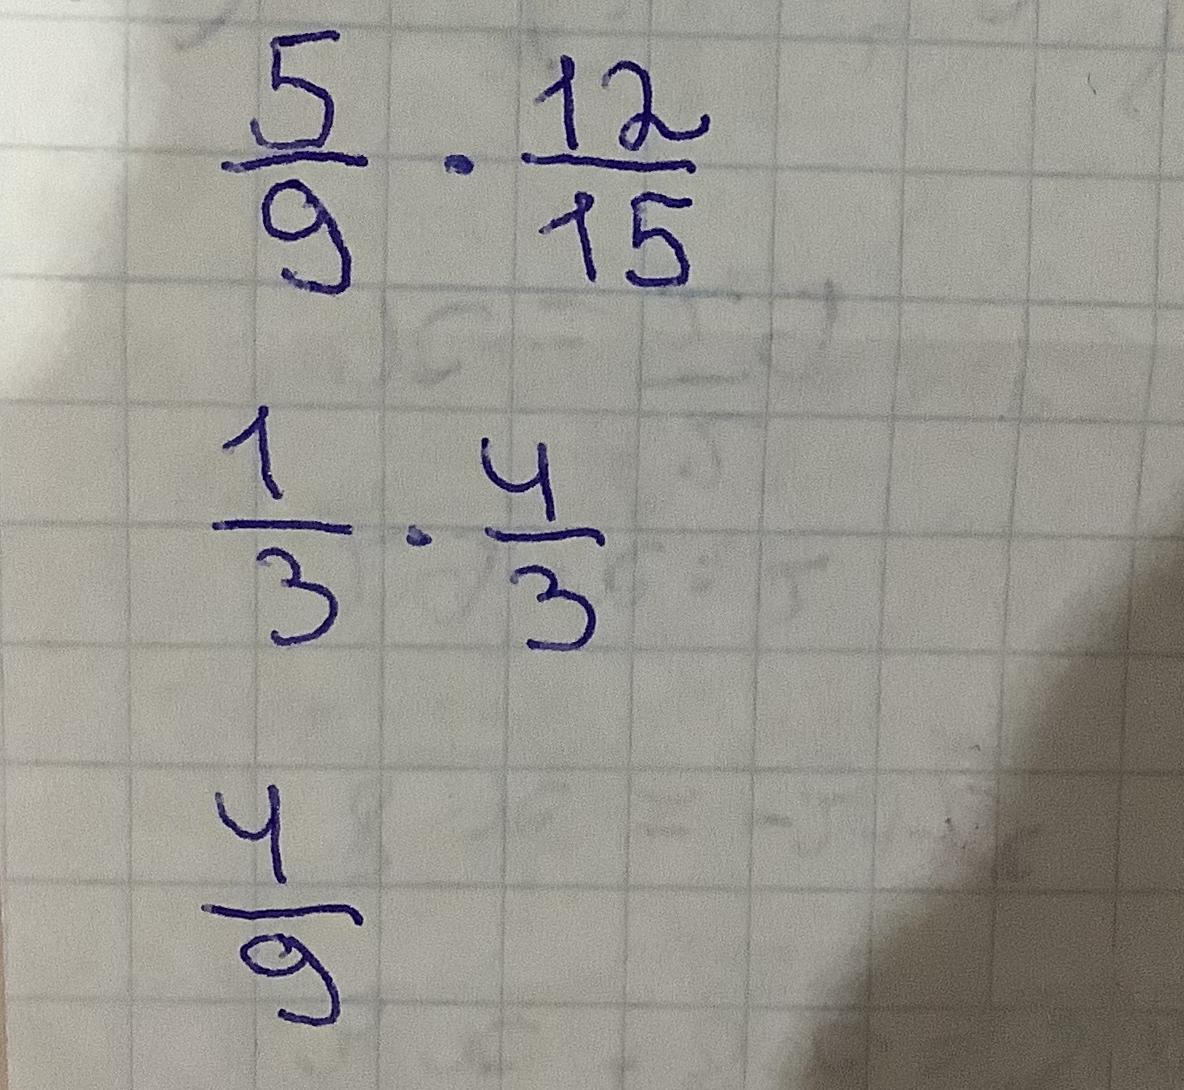 5/9 · 12/15
1/3 · 4/3
4/9